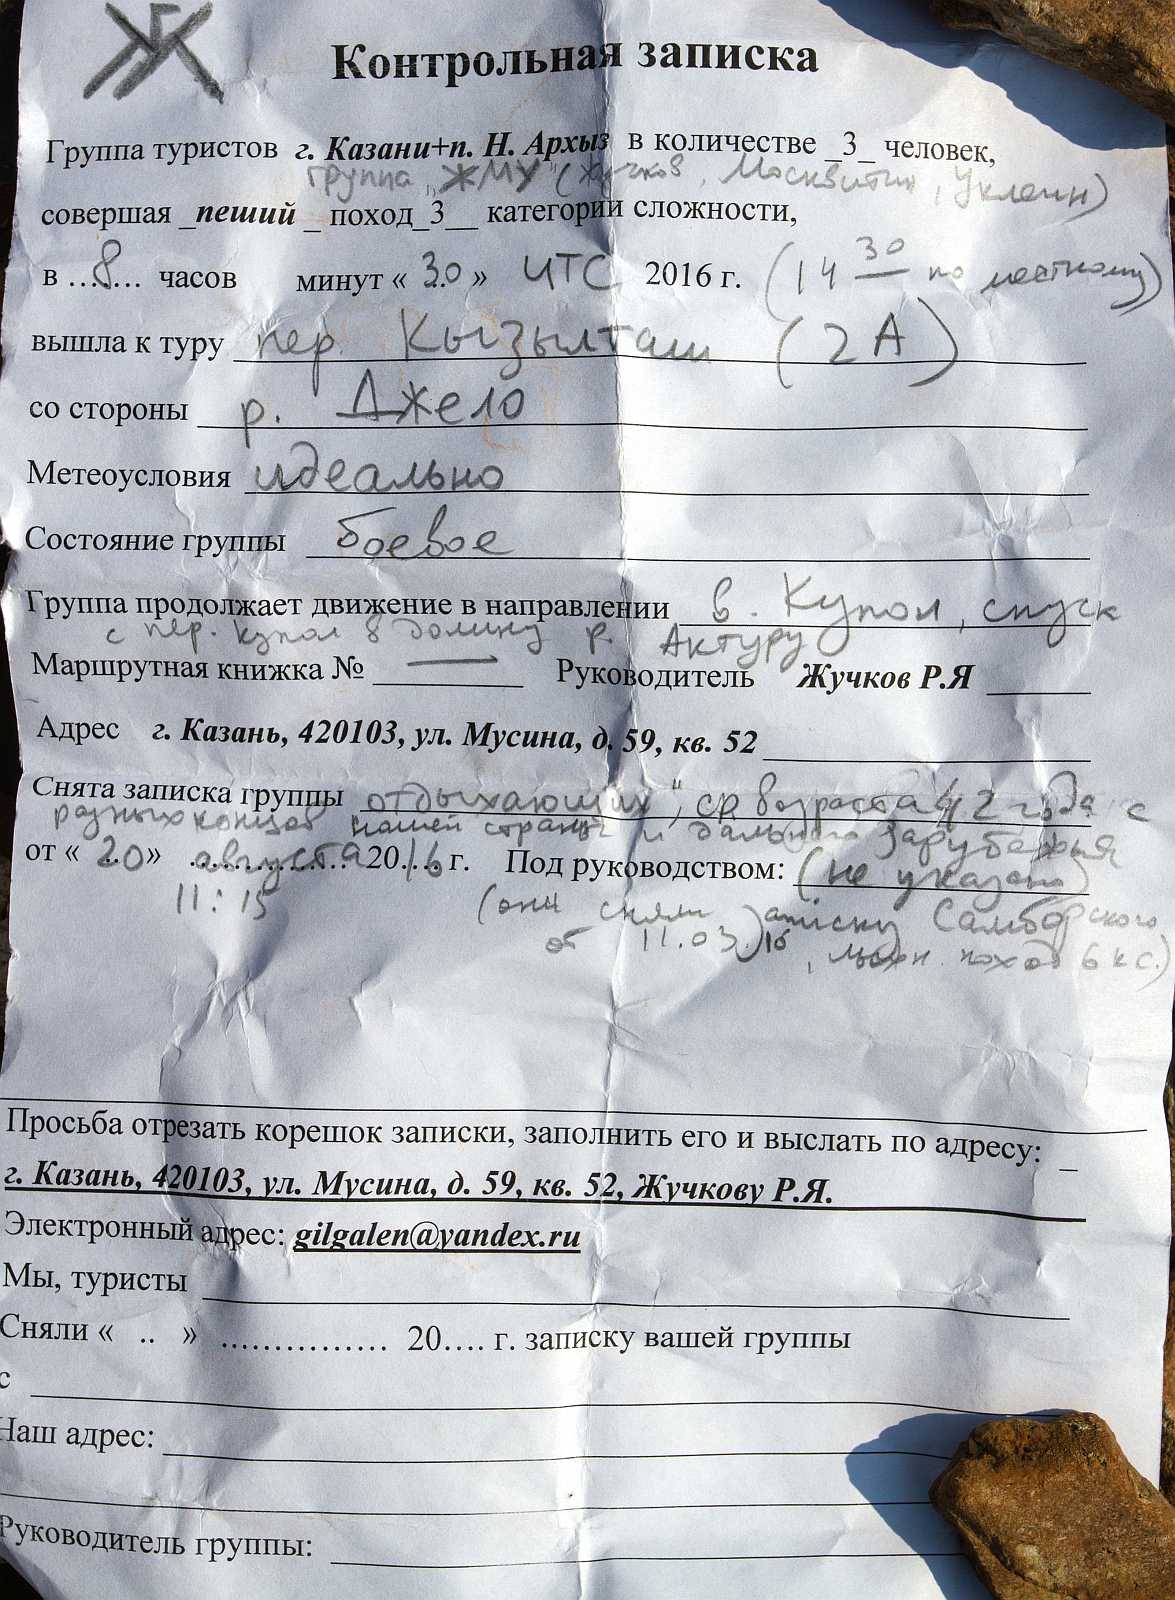 ЖК
Контрольная записка
Группа туристов г. Казани+п. Н. Архыз в количестве _3_ человек,
группа „ЖМУ" (Жучков, Москвитин, Уклеин)
совершая _пеший _ поход_3__ категории сложности,
в ...8... часов минут « 30 » UTC 2016 г. (14 30 по местному)
вышла к туру пер. Кызылташ (2А)
со стороны р. Джело
Метеоусловия идеально
Состояние группы боевое
Группа продолжает движение в направлении в. Купол, спуск
с пер. Купол в долину р. Актуру
Маршрутная книжка № — Руководитель Жучков Р.Я ______
Адрес г. Казань, 420103, ул. Мусина, д. 59, кв. 52
Снята записка группы „отдыхающих", ср возраста 42 года с
разных концов нашей страны и дальнего зарубежья
от « 20 » августа 2016 г. Под руководством: (не указано)
11:15
(они сняли записку Самборского
от 11.03.16, лыжн. поход 6 кс.)
Просьба отрезать корешок записки, заполнить его и выслать по адресу: _
г. Казань, 420103, ул. Мусина, д. 59, кв. 52, Жучкову Р.Я.
Электронный адрес: gilgalen@yandex.ru
Мы, туристы
Сняли « .. » ............... 20.... г. записку вашей группы
с
Наш адрес:
Руководитель группы: